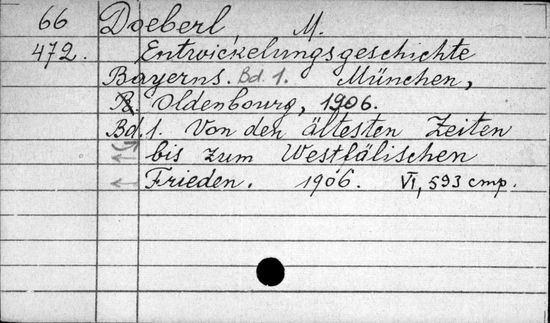 66 Doeberl M.
472. Entwickelungsgeschichte
Bayerns. Bd. 1. München,
R. Oldenbourg, 1906.
Bd. 1. Von den ältesten Zeiten
bis zum Westfälischen
Frieden. 1906. VI, 593 стр.